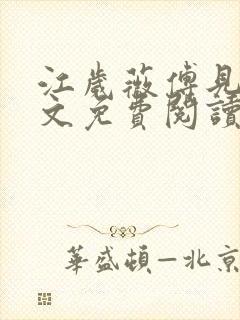 江歲薇傅見
文免費閱讀
華盛頓—北京